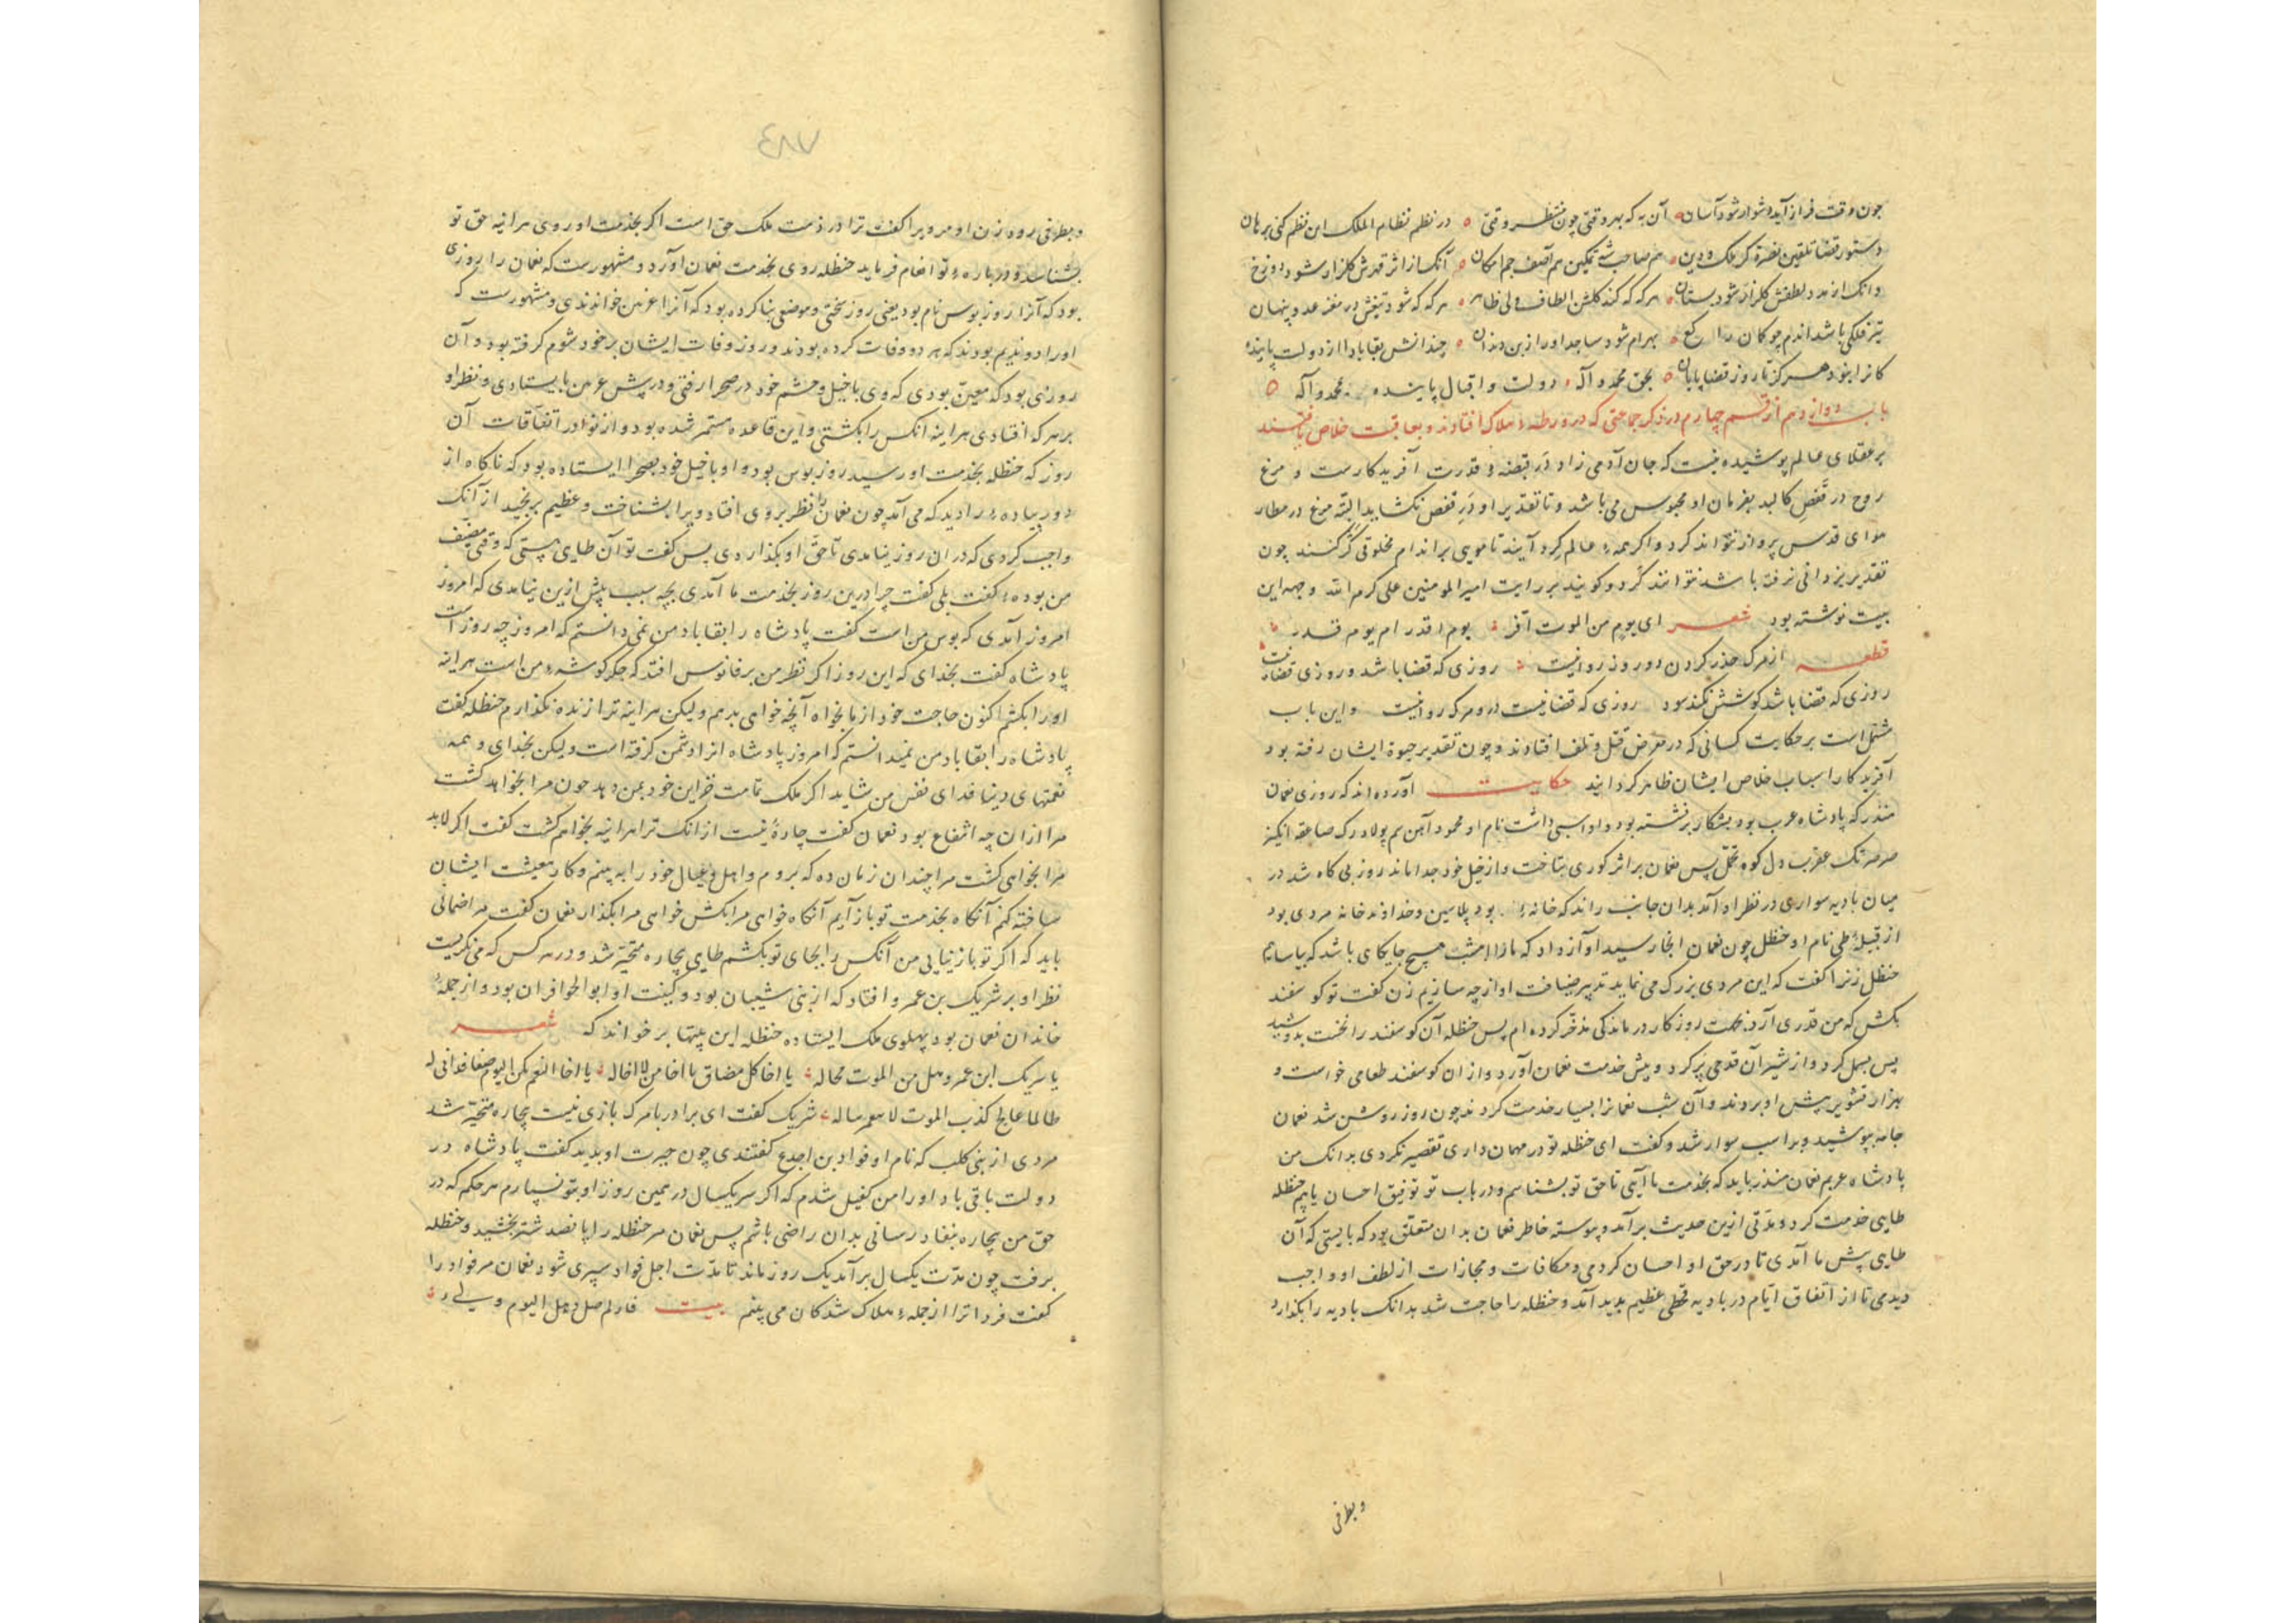 چون وقت فراز آید دشوار شود آسان آن به که بهر وقتی چون منتظر وقتی در نظم نظام الملک این نظم کنی برهان
دستور قضا تلقین نصرة کر ملک و دین هم صاحب تمکین هم آصف جم امکان آنک از اثر قدرش گلزار شود دوزخ
وانک از مدد لطفش گلزار شود بستان هرکه که کند گلشن الطاف ولی ظاهر هرکه که شود تیغش در مغز عدو پنهان
تیر فلکی باشد اندم چو کمان بهرام شود ساجد او را از بن دندان چندانش بقا بادا از دولت پاینده
کانرا نبود هرگز تا روز قضا پایان بحق محمد و آله دولت و اقبال پاینده محمد و آله
باب دوازدهم از قسم چهارم در ذکر جماعتی که در ورطهٔ هلاک افتادند و بعاقبت خلاص یافتند
بر عقلای عالم پوشیده نیست که جان آدمی زاد در قبضهٔ قدرت آفریدکارست و مرغ
روح در قفص کالبد بفرمان او محبوس می باشد و تا تقدیر او در قفص نکشاید البته مرغ در مطار
هوای قدس پرواز نتواند کرد و اگر همهٔ عالم کرد آیند تا مویی بر اندام مخلوقی کژ کنند چون
تقدیر یزدانی نرفته باشد نتوانند کرد و کویند بر رایت امیر المومنین علی کرم الله وجهه این
بیت نوشته بود شعر ای یوم من الموت افر یوم لا قدر ام یوم قدر
قطعه از مرک حذر کردن دو روز روا نیست روزی که قضا باشد و روزی قضا نیست
روزی که قضا باشد کوشش نکند سود روزی که قضا نیست درو مرک روا نیست و این باب
مشتمل است بر حکایت کسانی که در معرض قتل و تلف افتادند و چون تقدیر حیوة ایشان رفته بود
آفریدکار اسباب خلاص ایشان ظاهر کردانید حکایت آورده اند که روزی نعمان
منذر که پادشاه عرب بود بشکار برنشسته بود و او اسبی داشت نام او محمود آهن سم پولاد رک صاعقه انکیز
صرصر تک عقرب دل کوه تحمل پس نعمان بر اثر کوری بتاخت و از خیل خود جدا ماند روز بی کاه شد در
میان بادیه سواری در نظر او آمد بدان جانب راند که خانهٔ بود پلاسین و خداوند خانه مردی بود
از قبیلهٔ طی نام او حنظل چون نعمان انجا رسید او آواز داد که ما را امشب هیچ جایکای باشد که بیاساییم
حنظل زنرا کفت که این مردی بزرک می نماید تدبیر ضیافت او از چه سازیم زن کفت تو کوسفند
بکش که من قدری آرد بجهت روزکار درماندکی مذخر کرده ام پس حنظله آن کوسفند را نخست بدوشید
پس بسمل کرد و از شیر آن قدحی پر کرد و پیش خدمت نعمان آورد و از ان کوسفند طعامی خواست و
بهزار تشویر پیش او بردند و آن شب نعمانرا بسیار خدمت کردند چون روز روشن شد نعمان
جامه بپوشید و بر اسب سوار شد و کفت ای حنظله تو در مهمان داری تقصیر نکردی بدانک من
پادشاه عربم نعمان منذر باید که بخدمت ما آیی تا حق تو بشناسم و در باب تو توفیق احسان یابم حنظله
طایی خدمت کرد و مدتی ازین حدیث برآمد و پیوسته خاطر نعمان بدان متعلق بود که بایستی که آن
طایی پیش ما آمدی تا در حق او احسان کردمی و مکافات و مجازات از لطف او واجب
دیدمی تا از اتفاق ایام در بادیه قحطی عظیم پدید آمد و حنظله را حاجت شد بدانک بادیه را بکذارد
وبطرفی
٤٨٧
وبطرفی رود زن او مرو را کفت ترا در ذمت ملک حق است اکر بخدمت او روی هراینه حق تو
بشناسد و در بارهٔ تو انعام فرماید حنظله روی بخدمت نعمان آورد و مشهورست که نعمان را روزی
بود که آنرا روز بوس نام بود یعنی روز سختی و موضعی بنا کرده بود که آنرا غریین خواندندی و مشهورست که
او را دو ندیم بودند که هر دو وفات کرده بودند و روز وفات ایشان بر خود شوم کرفته بود و آن
روزی بود که معین بودی که وی با خیل و حشم خود در صحرا رفتی و در پیش غریین بایستادی و نظر او
بر هر که افتادی هراینه انکس را بکشتی و این قاعده مستمر شده بود و از نوادر اتفاقات آن
روز که حنظله بخدمت او رسید روز بوس بود و او با خیل خود بصحرا ایستاده بود که ناکاه از
دور پیادهٔ را دید که می آمد چون نعمان را نظر بر وی افتاد ویرا بشناخت و عظیم برنجید از آنک
واجب کردی که در ان روز نیامدی تا حق او بکذاردی پس کفت تو آن طایی هستی که وقتی مضیف
من بودهٔ کفت بلی کفت چرا درین روز بخدمت ما آمدی بچه سبب پیش ازین نیامدی که امروز
امروز آمدی که بوس من است کفت پادشاه را بقا باد من نمی دانستم که امروز چه روز است
پادشاه کفت بخدای که این روز اکر نظر من بر قابوس افتد که جکر کوشهٔ من است هراینه
او را بکشم اکنون حاجت خود از ما بخواه آنچه خواهی بدهم ولیکن هراینه ترا زنده نکذارم حنظله کفت
پادشاه را بقا باد من نمیدانستم که امروز پادشاه ولیکن بخدای و همه
نعمتهای دنیا فدای نفس من شاید اکر ملک تمامت خزاین خود بمن دهد چون مرا بخواهد کشت
مرا از ان چه انتفاع بود نعمان کفت چارهٔ نیست از انک ترا هراینه بخواهم کشت کفت اکر لابد
مرا بخواهی کشت مرا چندان زمان ده که بروم و اهل و عیال خود را به بینم و کار معیشت ایشان
ساخته کنم آنکاه بخدمت تو باز آیم آنکاه خواهی مرا بکش خواهی مرا بکذار نعمان کفت مرا ضمانی
باید که اکر تو باز نیایی من آنکس را بجای تو بکشم طایی بیچاره متحیر شد و در هر کس که می نکریست
نظر او بر شریک بن عمرو افتاد که از بنی شیبان بود و کنیت او ابو الحوافزان بود و از جملهٔ
خاندان نعمان بود پهلوی ملک ایستاده حنظله این بیتها برخواند که شعر
یا شریک ابن عمرو هل من الموت محاله یا اخا کل مضاف یا اخا من لا اخا له یا اخا النعم
طالما عالج کرب الموت لا شریک کفت ای برادر با مرک بازی نیست بیچاره متحیر شد
مردی از بنی کلب که نام او قراد بن اجدع کفتندی چون حیرت او بدید کفت پادشاه در
دولت باقی باد او را من کفیل شدم که اکر سر یکسال در همین روز او بتو نسپارم هر حکم که در
حق من بیچاره بنفاذ رسانی بدان راضی باشم پس نعمان مر حنظله را پانصد شتر بخشید و حنظله
برفت چون مدت یکسال برآمد یک روز ماند تا مدت اجل قراد سپری شود نعمان مر قراد را
کفت فردا ترا از جملهٔ هلاک شدکان می بینم بیت